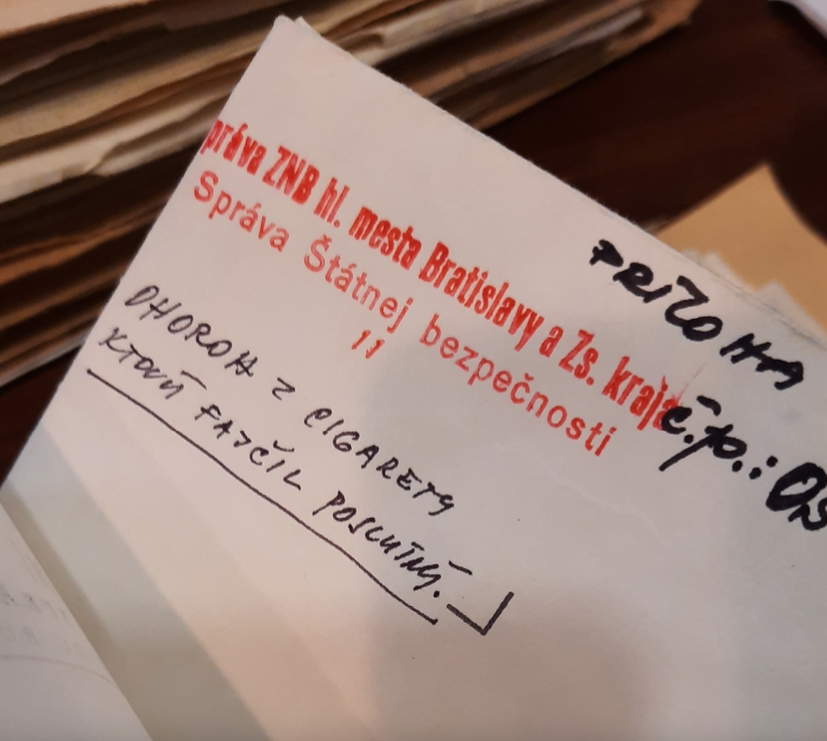 práva ZNB hl. mesta Bratislavy a Zs. kraja
Správa Štátnej bezpečnosti
11
PRÍLOHA
č.p.: 05
OHOROK Z CIGARETY
KTORÚ FAJČIL POSLUTNÝ.